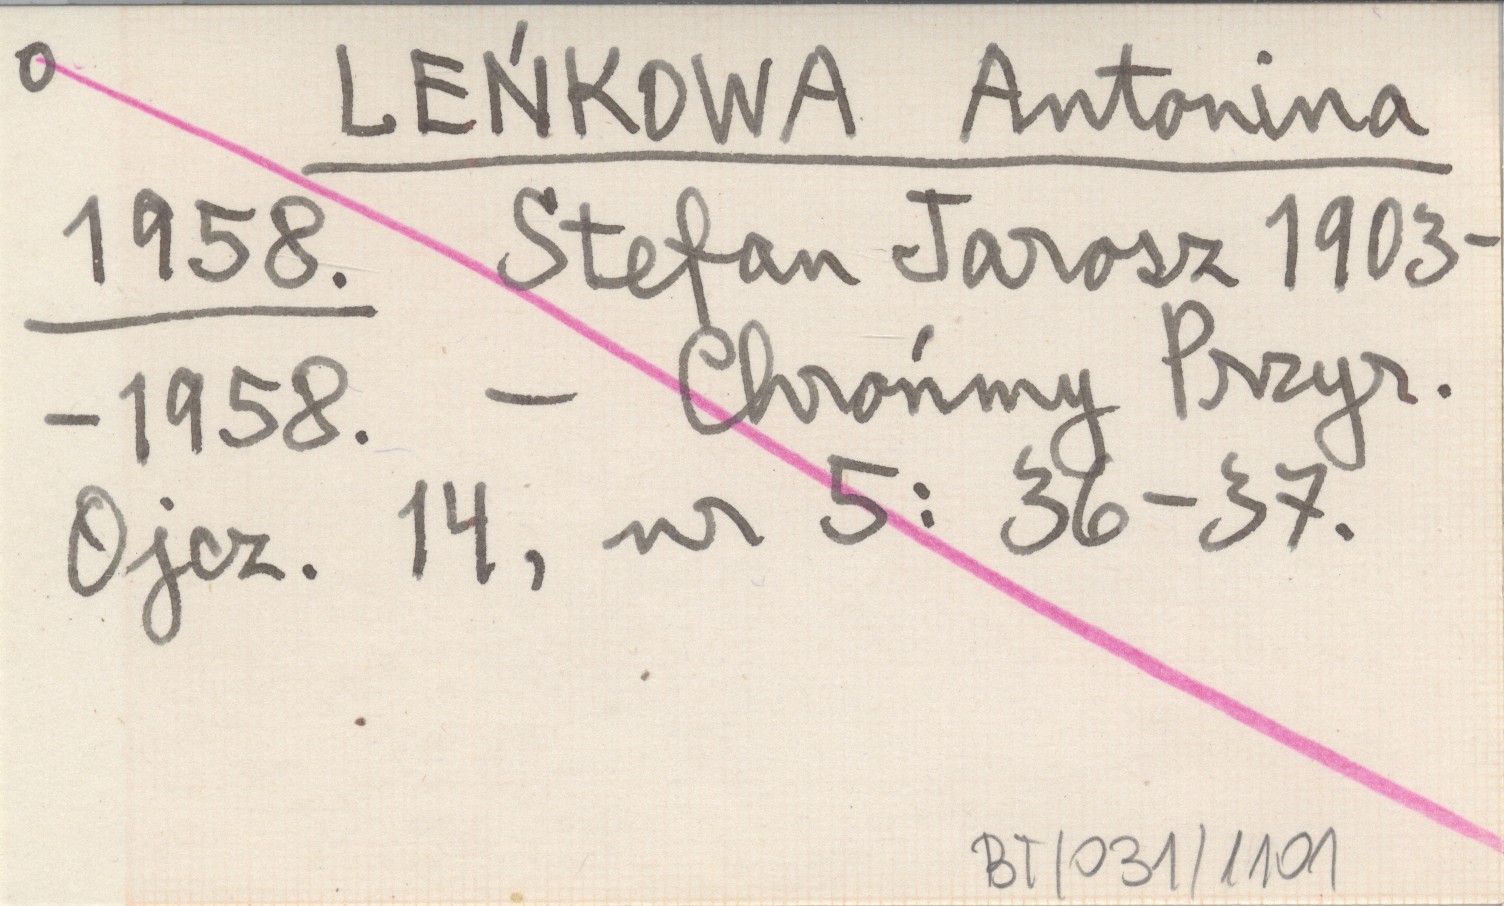 o LEŃKOWA Antonina
1958. Stefan Jarosz 1903-
-1958. - Chrońmy Przyr.
Ojcz. 14, nr 5: 36-37.
BT/031/1101